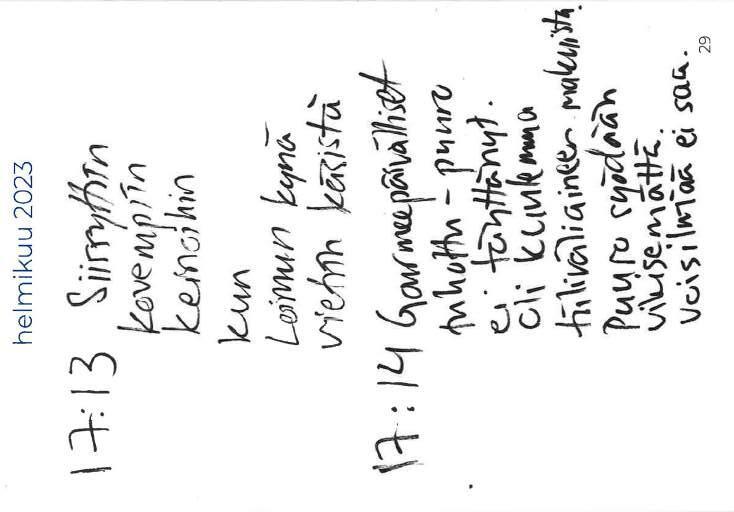 helmikuu 2023
17:13 Siirryttiin
kovempiin
keinoihin
kun
Loimun kynä
vietiin käsistä
17:14 Gourmeepäivälliset
tuhottu - puuro
ei täyttänyt.
Oli kuulemma
tiiliväliaineen makuista.
Puuro syödään
vikisemättä.
Voisilmää ei saa.
29